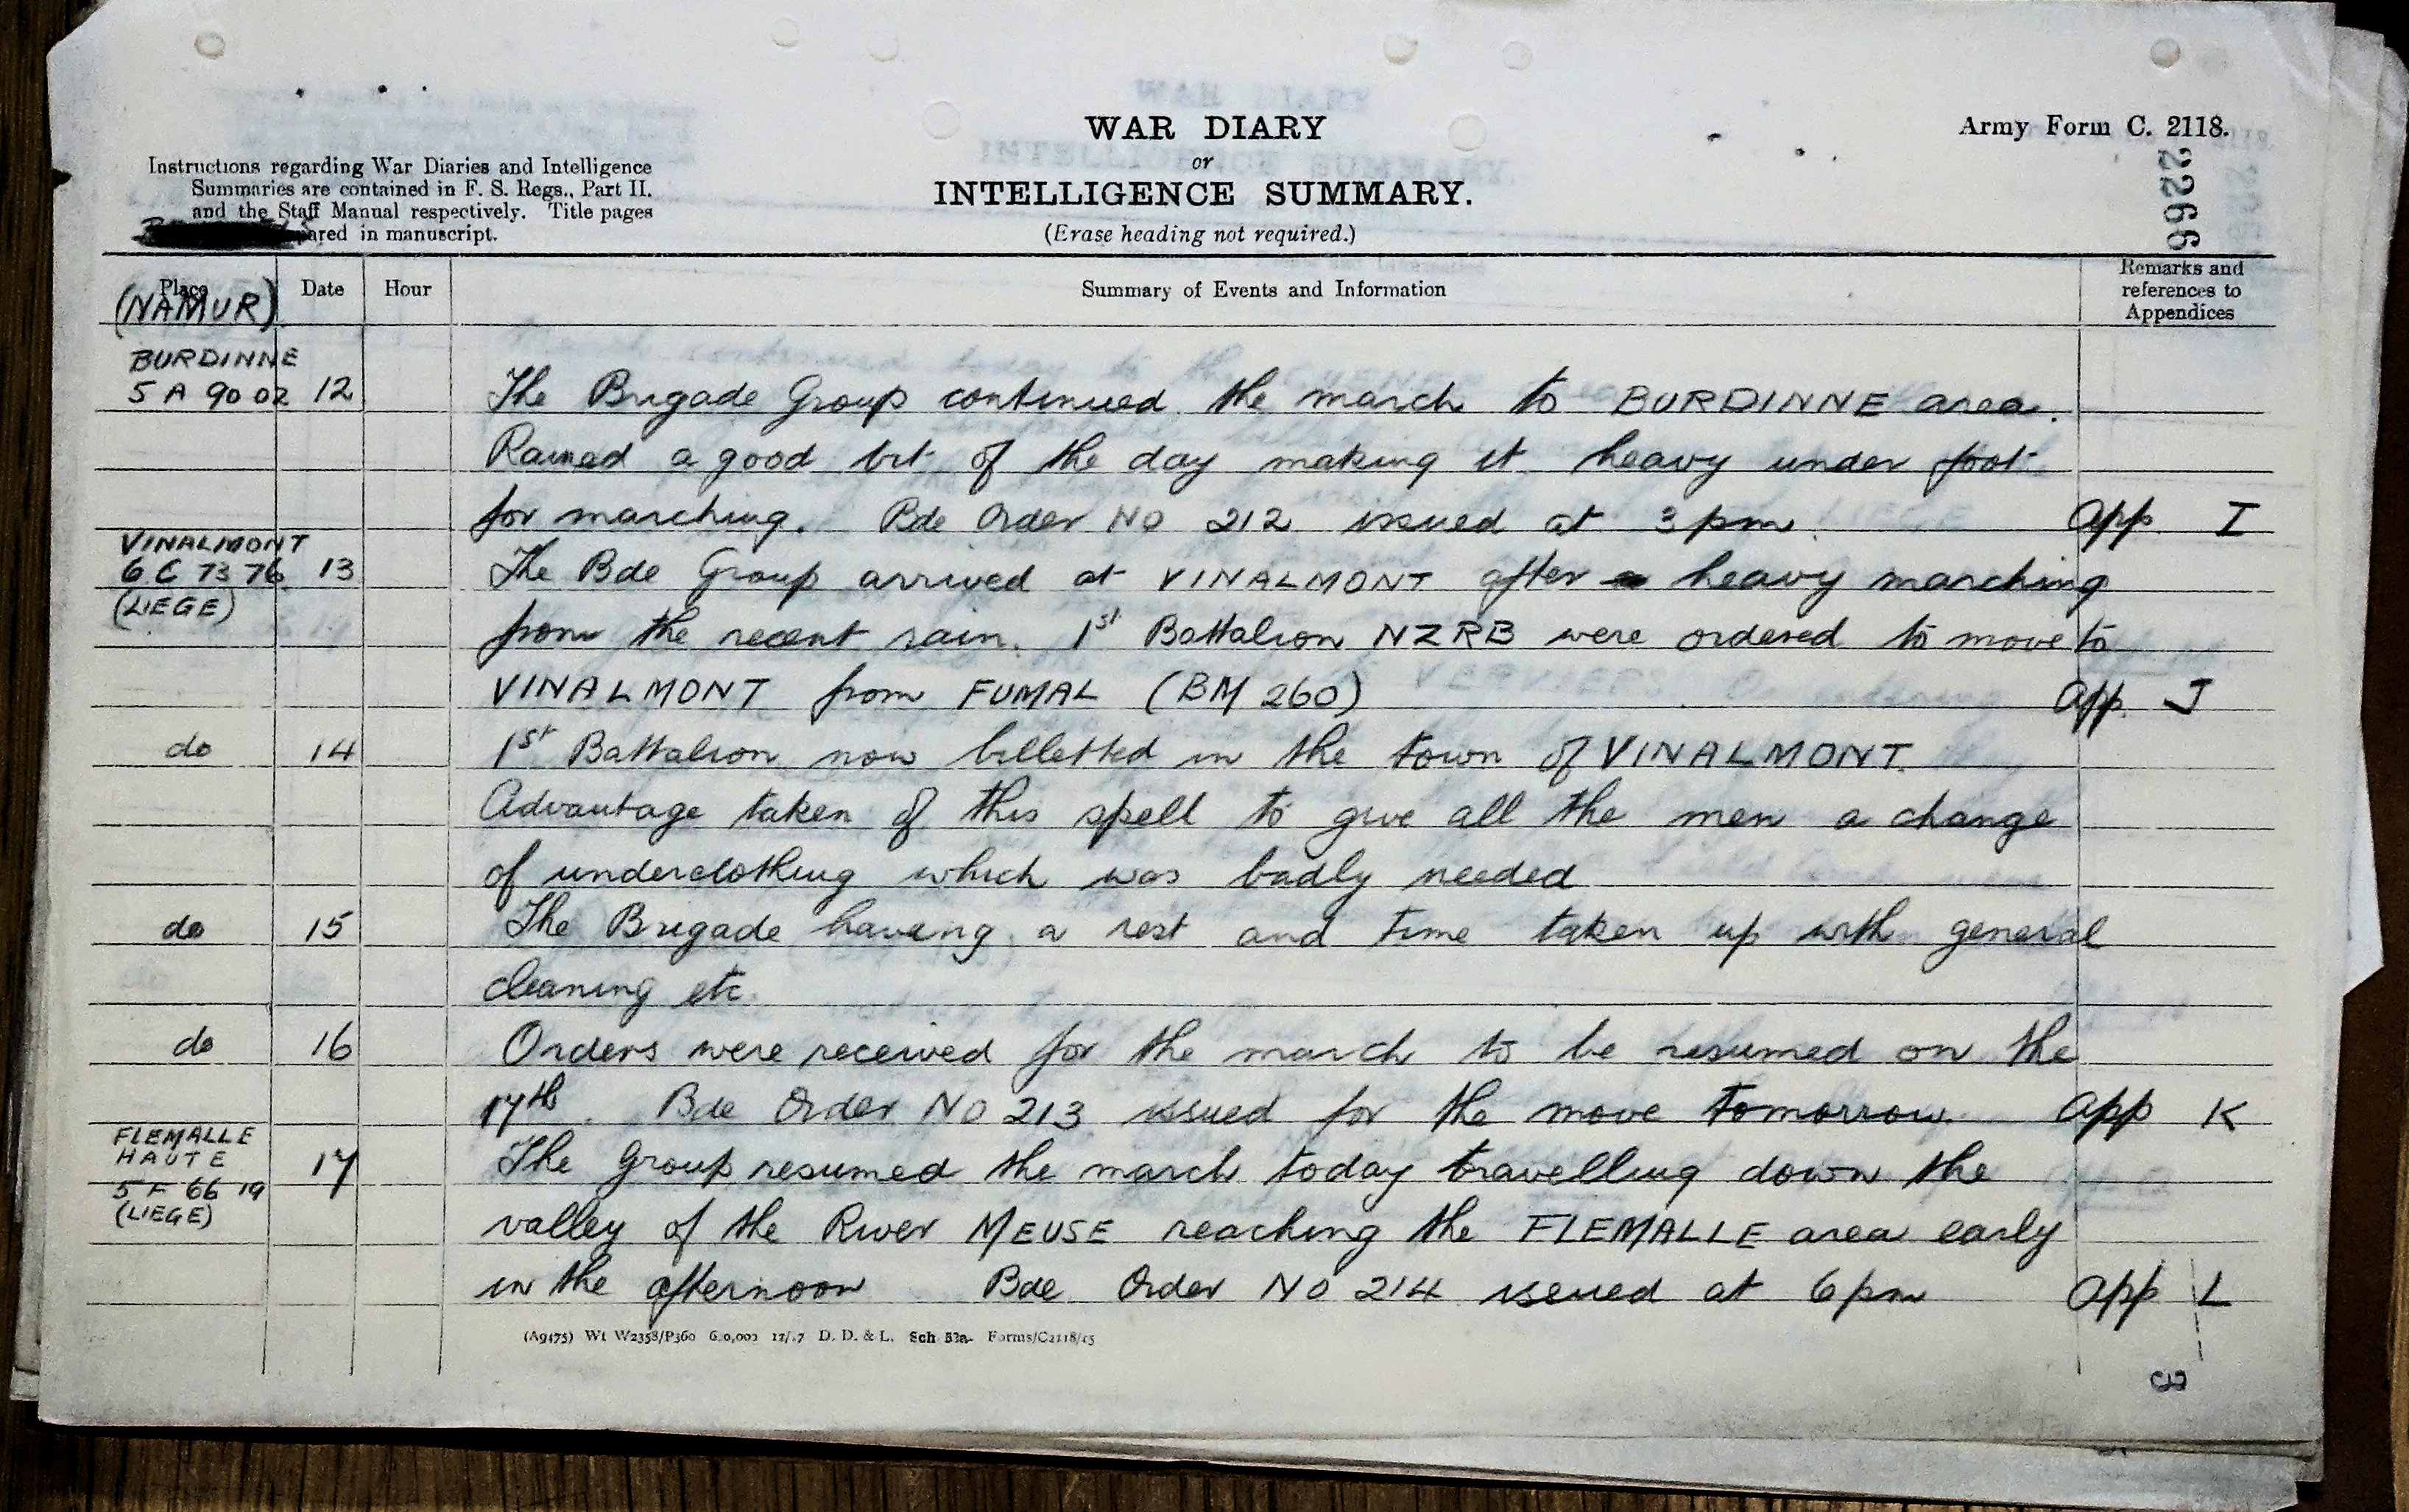 WAR DIARY
or
INTELLIGENCE SUMMARY.
(Erase heading not required.)
Army Form C. 2118.
2266
Instructions regarding War Diaries and Intelligence
Summaries are contained in F. S. Regs., Part II.
and the Staff Manual respectively. Title pages
ared in manuscript.
Place Date Hour Summary of Events and Information Remarks and references to Appendices
(NAMUR)
BURDINNE
5 A 90 02 12 The Brigade Group continued the march to BURDINNE area.
Rained a good bit of the day making it heavy under foot
for marching. Bde Order No 212 issued at 3 pm. App I
VINALMONT
6 C 73 76 13 The Bde Group arrived at VINALMONT after heavy marching
(LIEGE)
from the recent rain. 1st Battalion NZRB were ordered to move to
VINALMONT from FUMAL (BM 260) App. J
do 14 1st Battalion now billetted in the town of VINALMONT.
Advantage taken of this spell to give all the men a change
of underclothing which was badly needed
do 15 The Brigade having a rest and time taken up with general
cleaning etc.
do 16 Orders were received for the march to be resumed on the
17th. Bde Order No 213 issued for the move tomorrow. App K
FLEMALLE
HAUTE
17 The Group resumed the march today travelling down the
5 F 66 19
(LIEGE)
valley of the River MEUSE reaching the FLEMALLE area early
in the afternoon Bde Order No 214 issued at 6 pm App L
(A9175) Wt W2358/P360 600,000 12/17 D. D. & L. Sch 52a. Forms/C2118/15
3